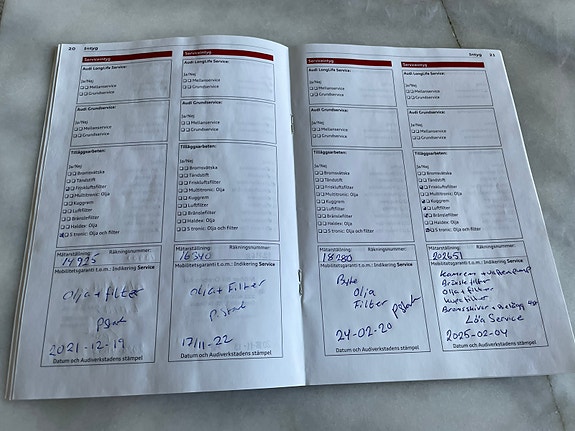 20 Intyg
Serviceintyg
Audi LongLife Service:
Ja/Nej
Mellanservice
Grundservice
Audi Grundservice:
Ja/Nej
Mellanservice
Grundservice
Tilläggsarbeten:
Ja/Nej
Bromsvätska
Tändstift
Friskluftsfilter
Multitronic: Olja
Kuggrem
Luftfilter
Bränslefilter
Haldex: Olja
S tronic: Olja och filter
Mätarställning: Räkningsnummer:
Mobilitetsgaranti t.o.m.: Indikering Service
Olja + filter
2021-12-19
Datum och Audiverkstadens stämpel
Serviceintyg
Audi LongLife Service:
Ja/Nej
Mellanservice
Grundservice
Audi Grundservice:
Ja/Nej
Mellanservice
Grundservice
Tilläggsarbeten:
Ja/Nej
Bromsvätska
Tändstift
Friskluftsfilter
Multitronic: Olja
Kuggrem
Luftfilter
Bränslefilter
Haldex: Olja
S tronic: Olja och filter
Mätarställning: Räkningsnummer:
16340
Mobilitetsgaranti t.o.m.: Indikering Service
Olja + Filter
17/11-22
Datum och Audiverkstadens stämpel
Intyg 21
Serviceintyg
Audi LongLife Service:
Ja/Nej
Mellanservice
Grundservice
Audi Grundservice:
Ja/Nej
Mellanservice
Grundservice
Tilläggsarbeten:
Ja/Nej
Bromsvätska
Tändstift
Friskluftsfilter
Multitronic: Olja
Kuggrem
Luftfilter
Bränslefilter
Haldex: Olja
S tronic: Olja och filter
Mätarställning: Räkningsnummer:
18280
Mobilitetsgaranti t.o.m.: Indikering Service
Byte
Olja
Filter
24-02-20
Datum och Audiverkstadens stämpel
Serviceintyg
Audi LongLife Service:
Ja/Nej
Mellanservice
Grundservice
Audi Grundservice:
Ja/Nej
Mellanservice
Grundservice
Tilläggsarbeten:
Ja/Nej
Bromsvätska
Tändstift
Friskluftsfilter
Multitronic: Olja
Kuggrem
Luftfilter
Bränslefilter
Haldex: Olja
S tronic: Olja och filter
Mätarställning: Räkningsnummer:
202651
Mobilitetsgaranti t.o.m.: Indikering Service
Kamrem +
Olja + filter
Bromsskivor +
Service
2025-02-04
Datum och Audiverkstadens stämpel